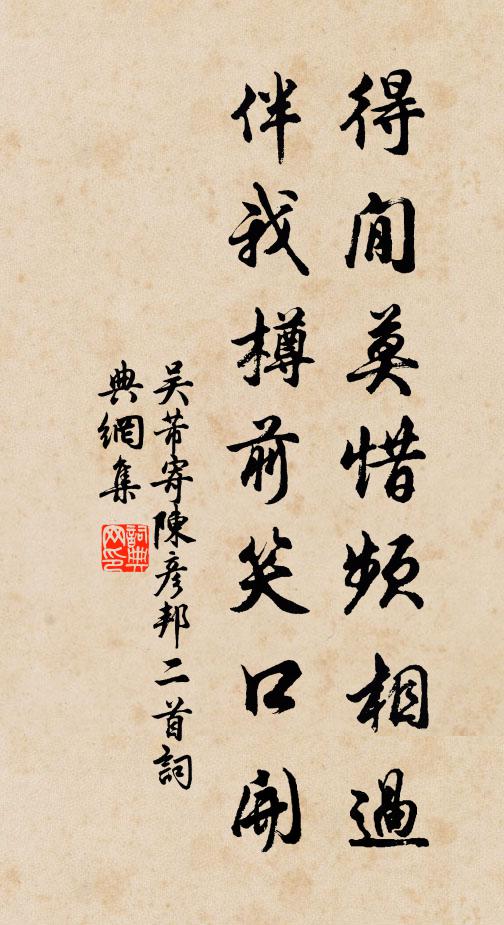 得閒莫惜頻相過
伴我樽前笑口開
吳芾寄陳彥邦二首詞
典網集
詞典
网印